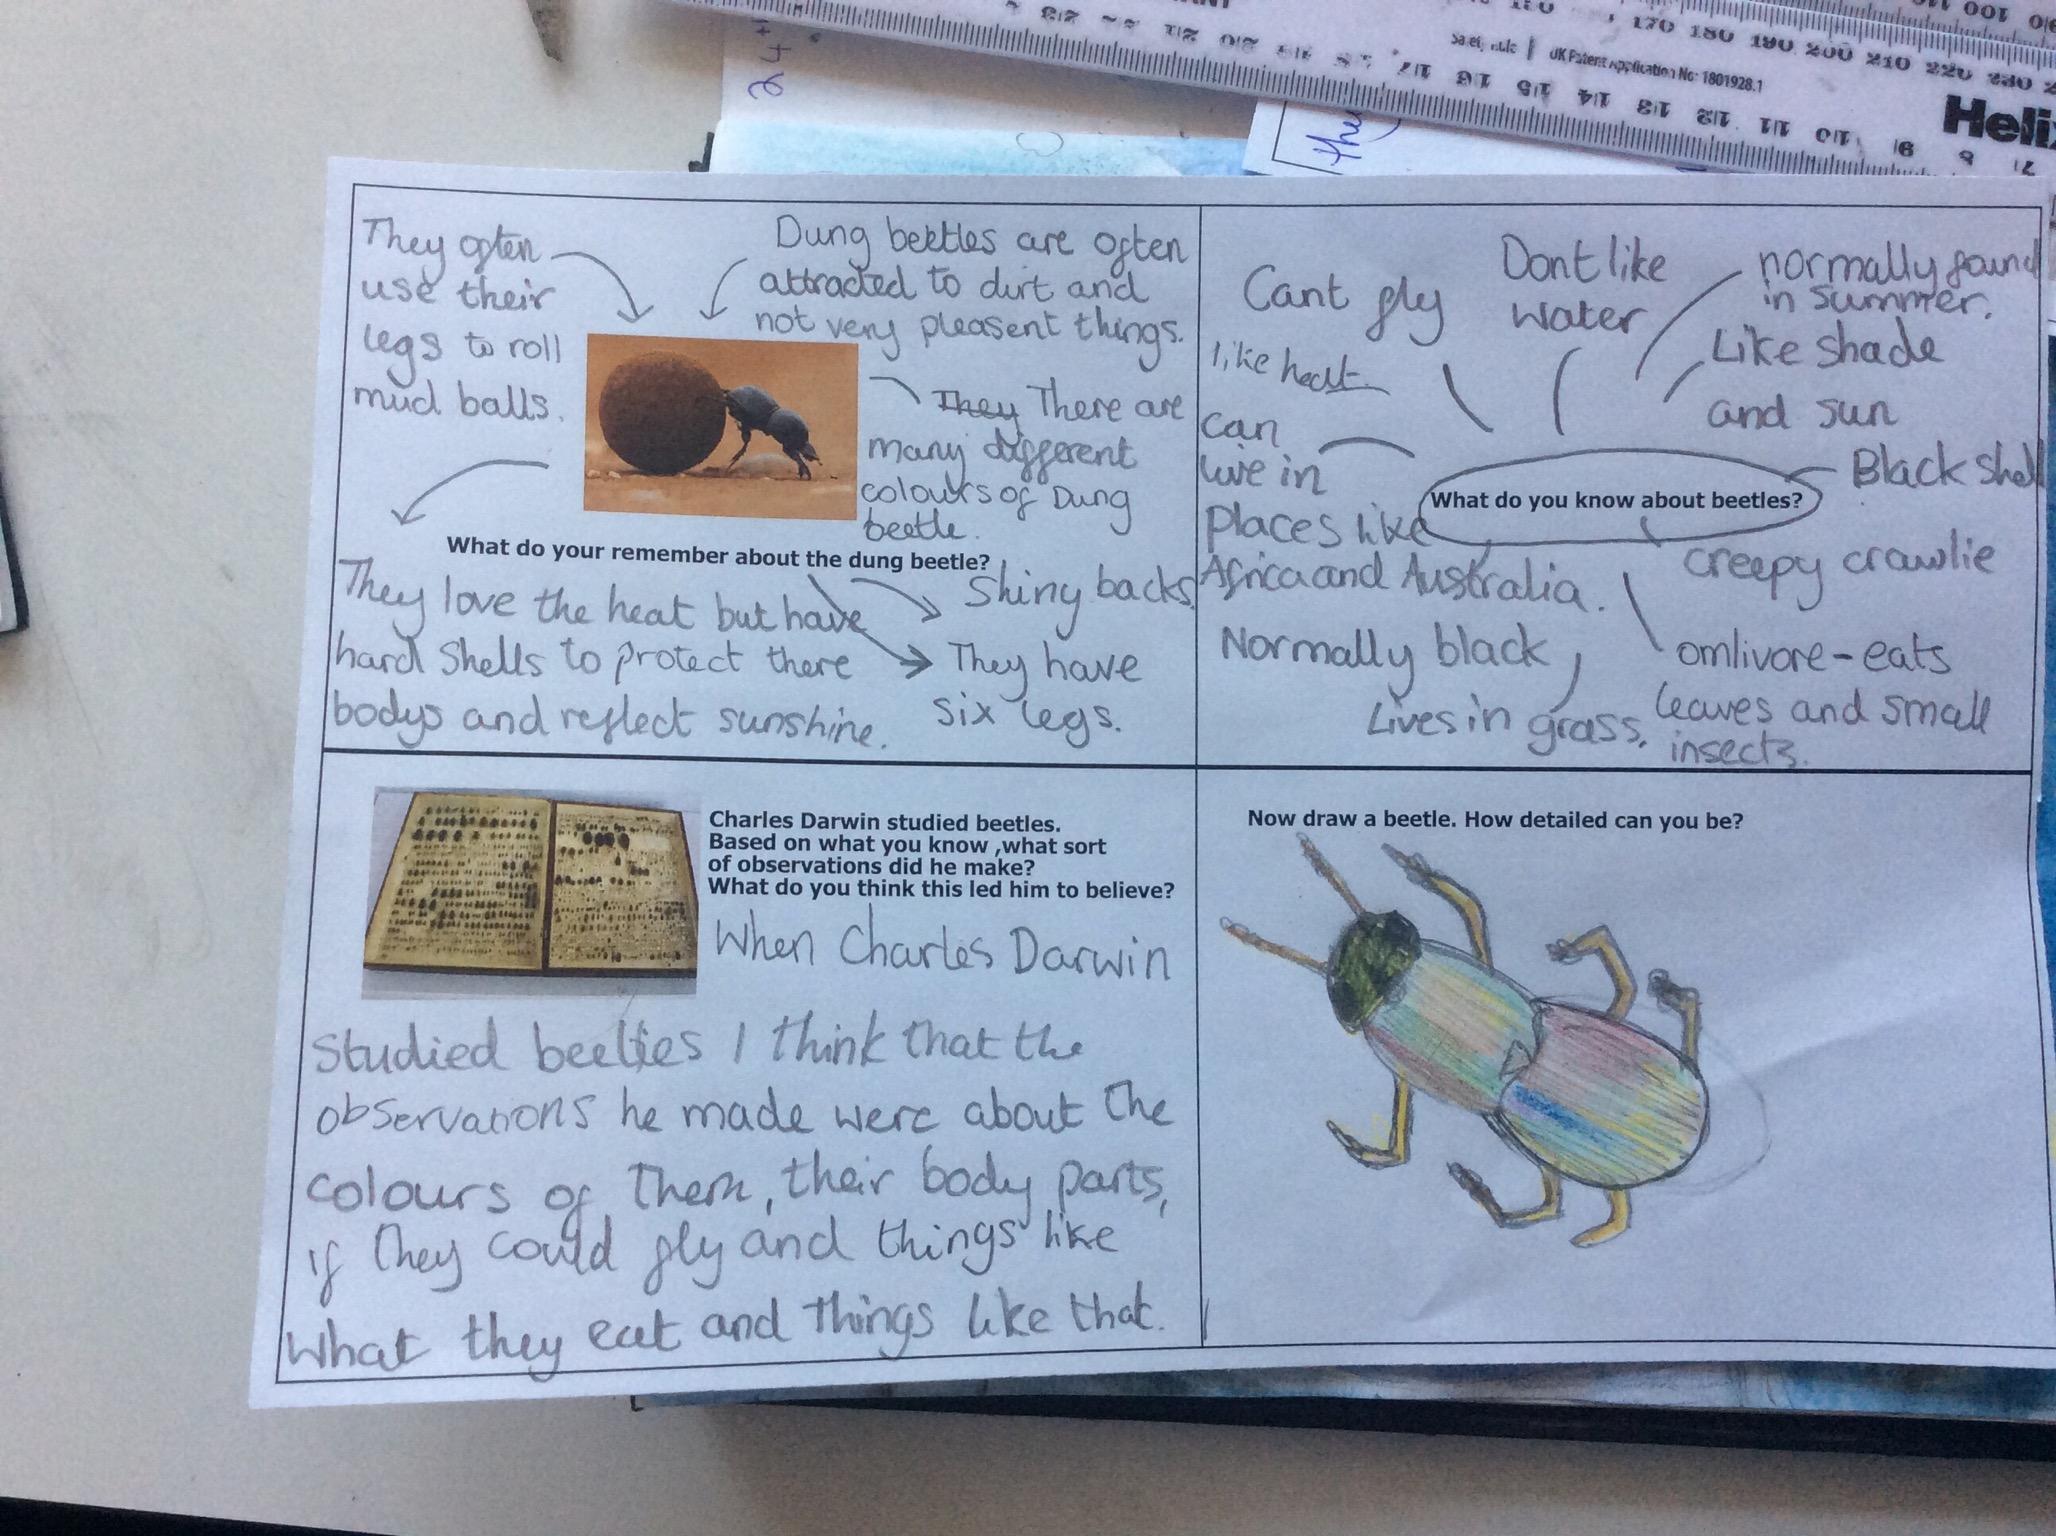 They often
use their
legs to roll
mud balls.
Dung beetles are often
attracted to dirt and
not very pleasent things.
They There are
many different
colours of Dung
beetle.
What do your remember about the dung beetle?
They love the heat but have
hard shells to protect there
bodys and reflect sunshine.
Shiny backs
They have
six legs.
Cant fly
Dont like
water
normally found
in summer.
Like shade
and sun
like heat
can
live in
places like
Africa and Australia.
What do you know about beetles?
Black shell
creepy crawlie
Normally black
Lives in grass.
omlivore-eats
leaves and small
insects.
Charles Darwin studied beetles.
Based on what you know ,what sort
of observations did he make?
What do you think this led him to believe?
When Charles Darwin
studied beetles I think that the
observations he made were about the
colours of them, their body parts,
if they could fly and things like
what they eat and things like that.
Now draw a beetle. How detailed can you be?
UK Patent Application No: 1801928.1
170 180 190 200 210 220
24